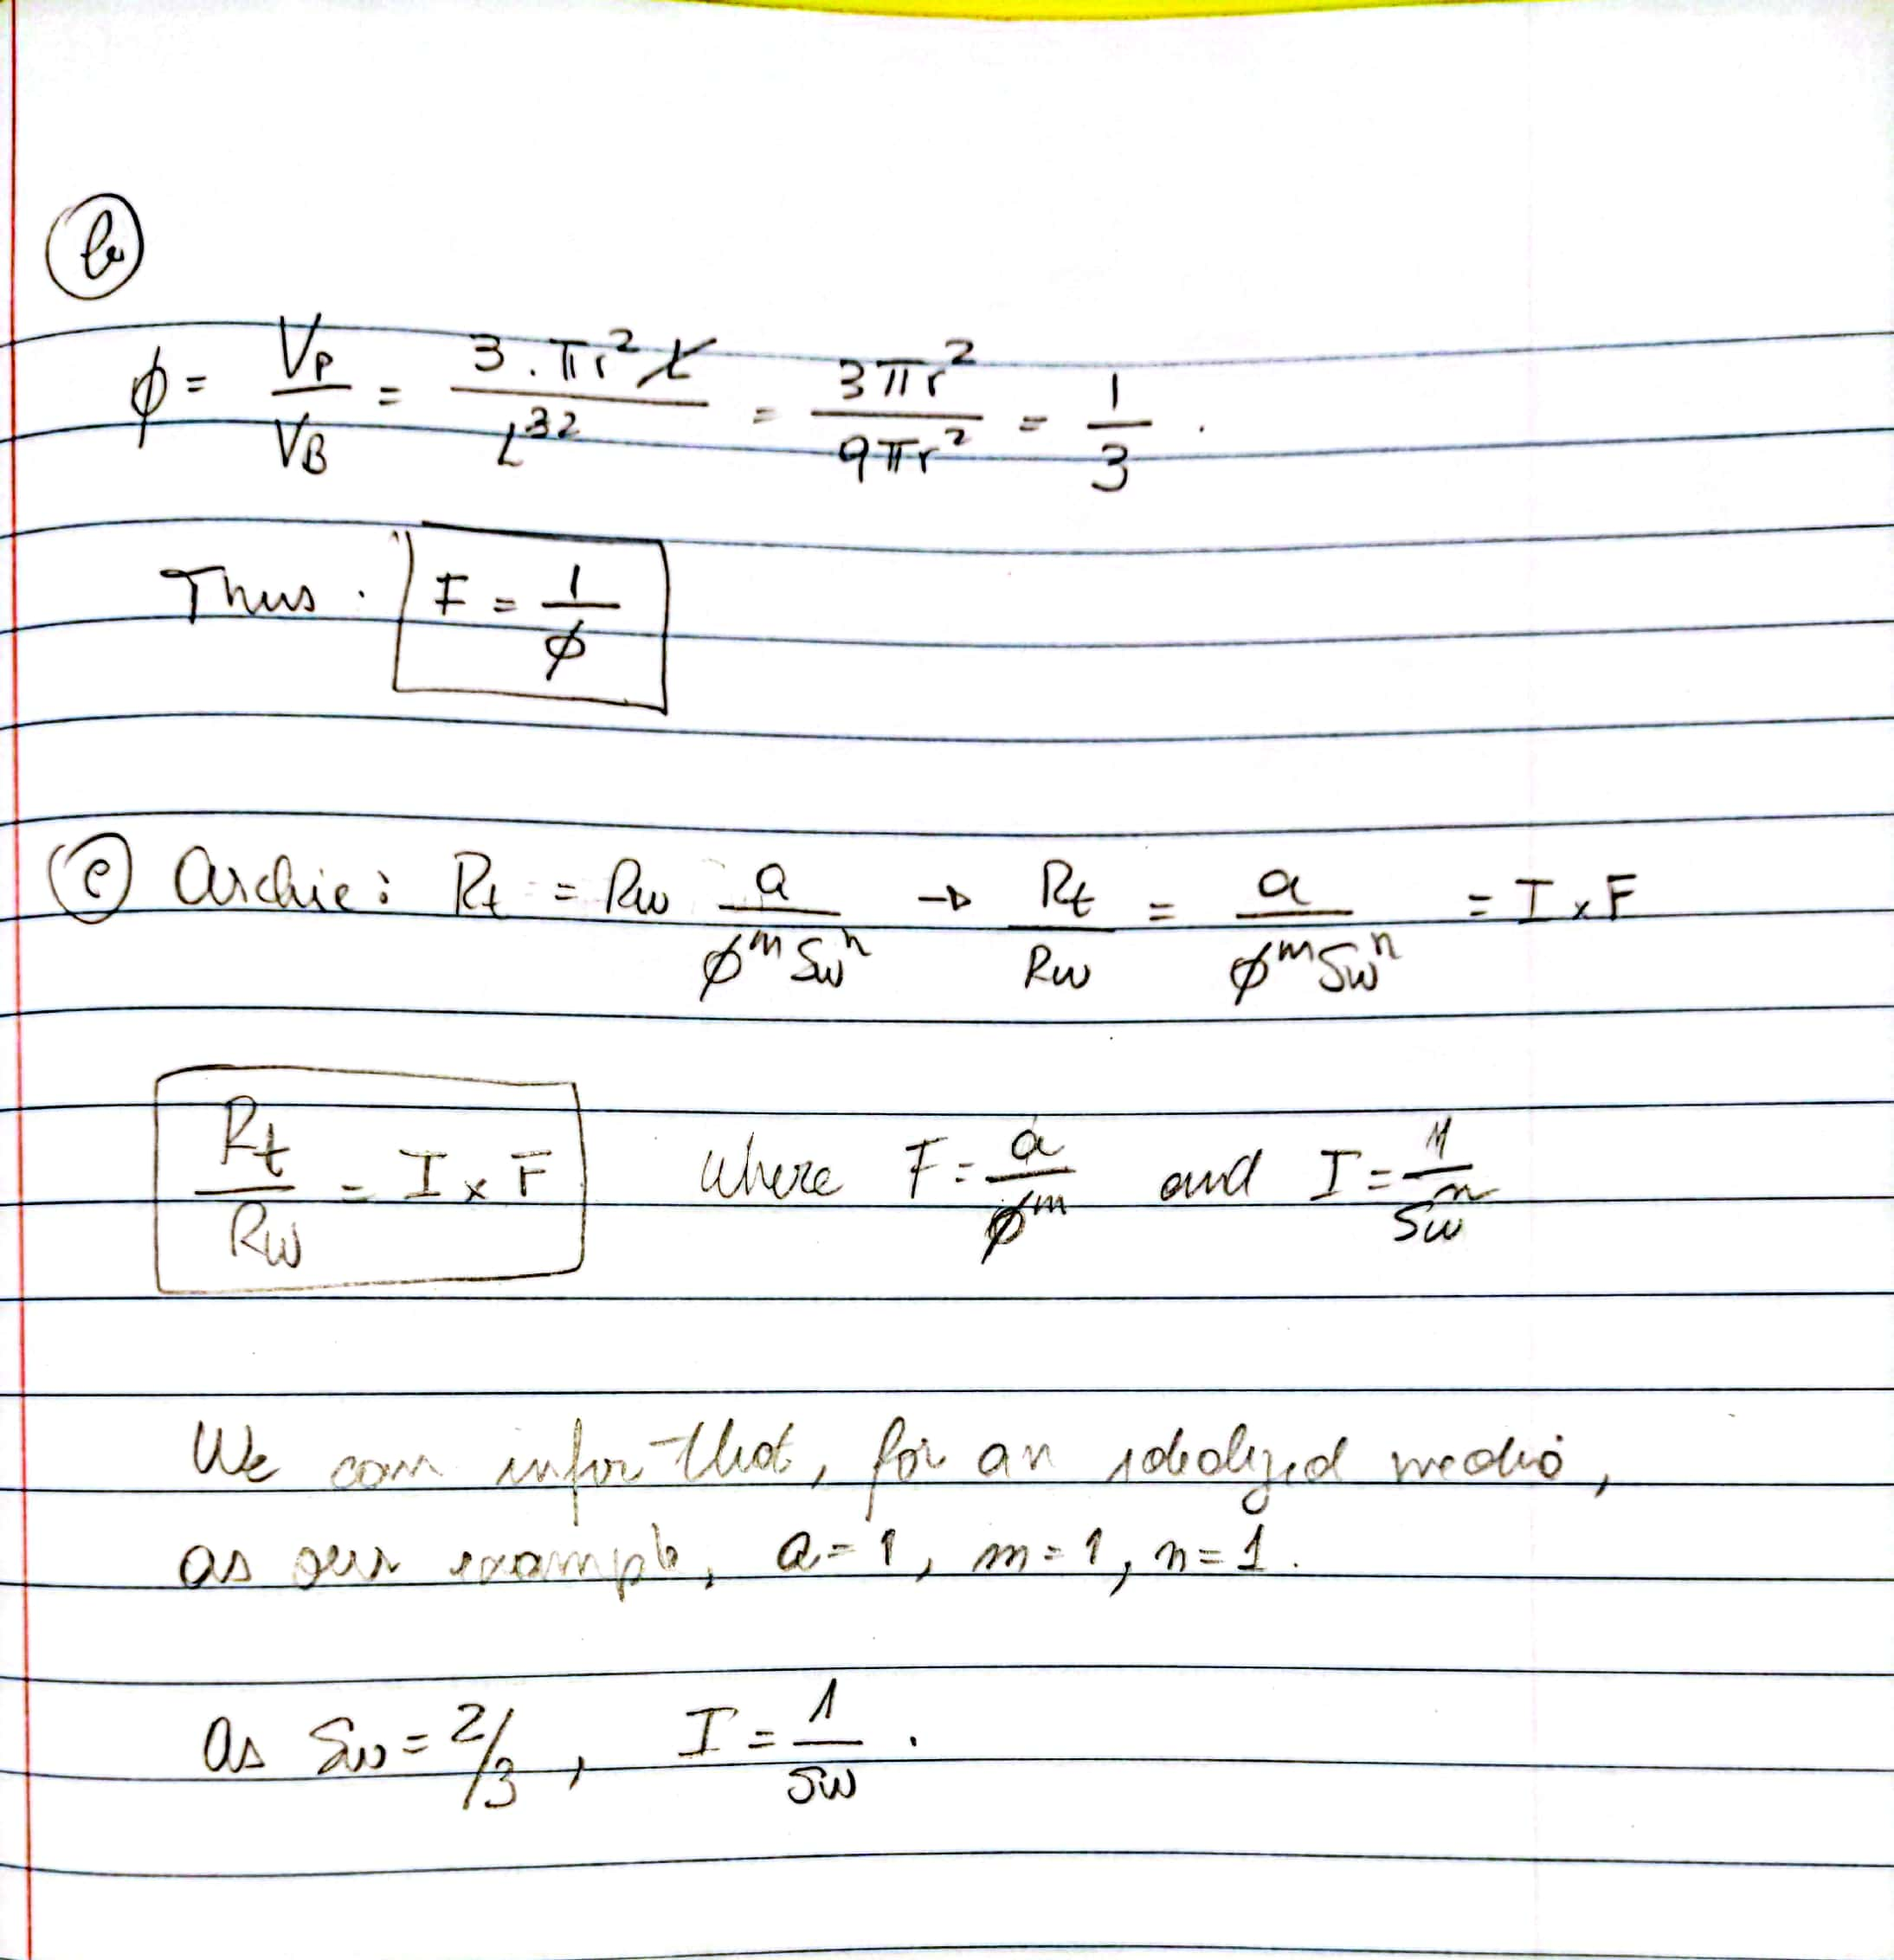 b
ϕ = Vp/VB = 3.πr²L/L³² = 3πr²/9πr² = 1/3.
Thus. F = 1/ϕ
c Archie: Rt = Rw a/ϕ^m Sw^n → Rt/Rw = a/ϕ^m Sw^n = I x F
Rt/Rw = I x F where F = a/ϕ^m and I = 1/Sw^n
We can infer that, for an idealized media,
as our example, a=1, m=1, n=1.
As Sw = 2/3, I = 1/Sw.